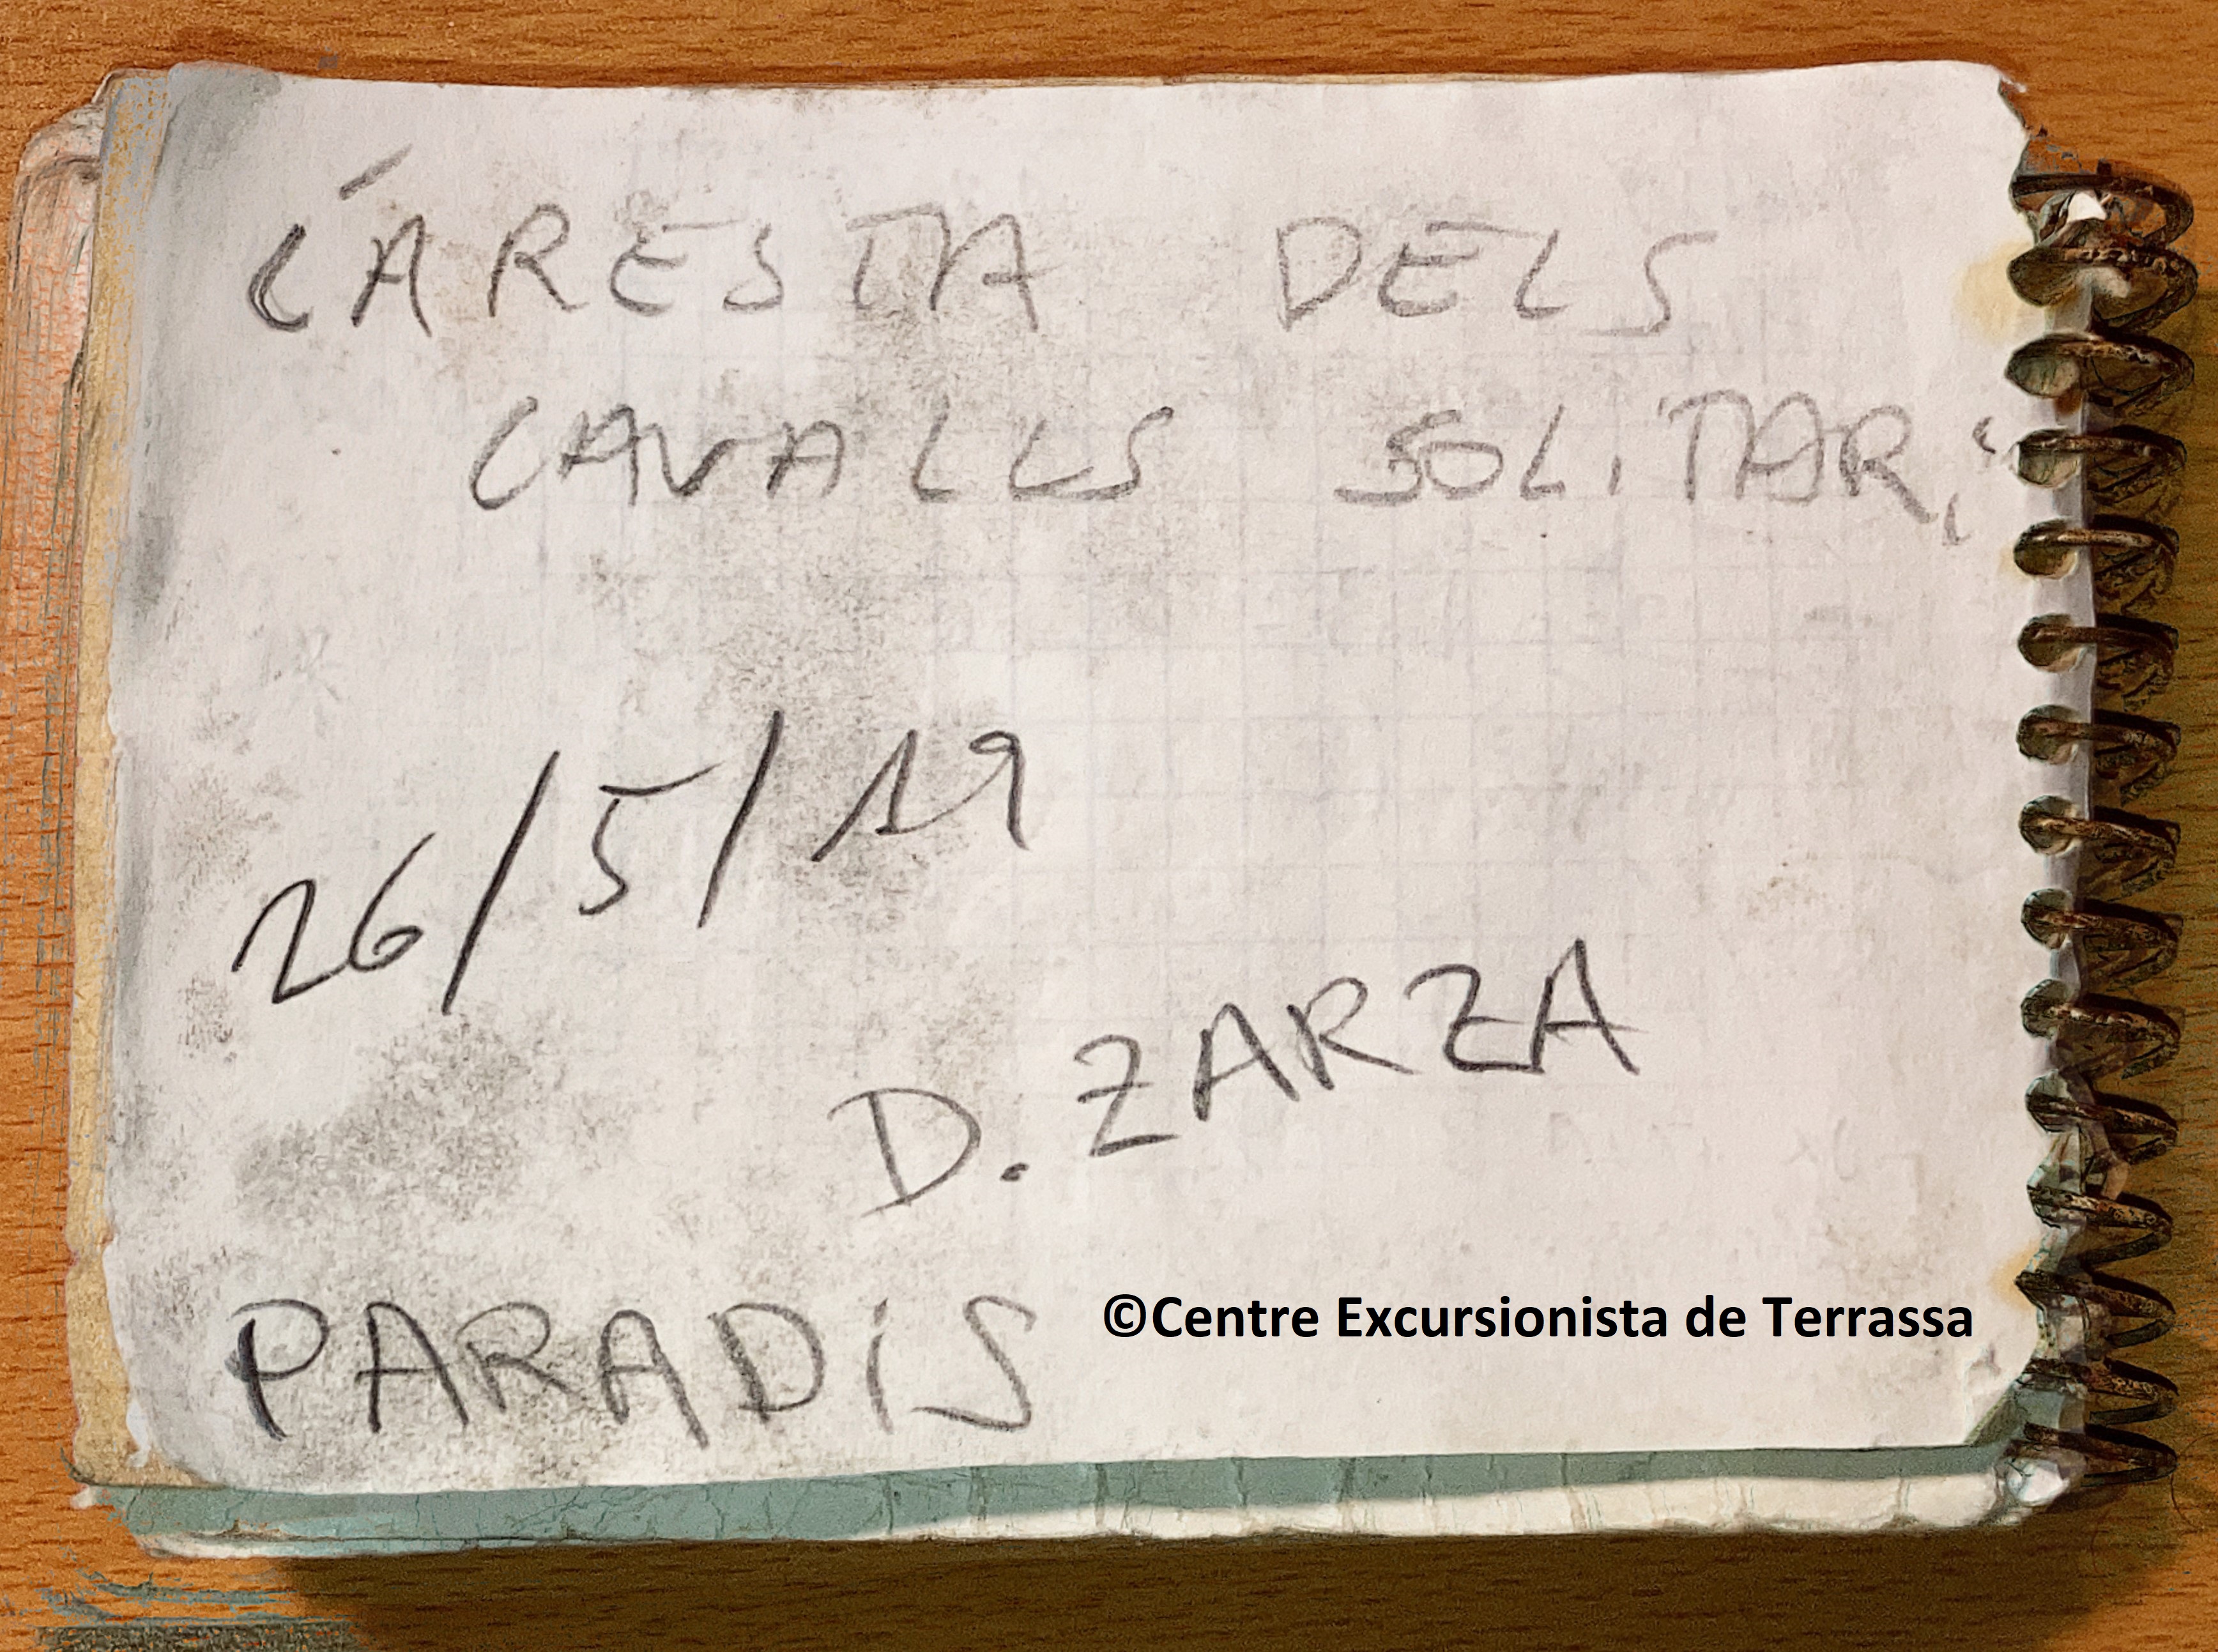 L'ARESTA DELS
CAVALLS SOLITARiS
26/5/19
D. ZARZA
PARADiS
©Centre Excursionista de Terrassa